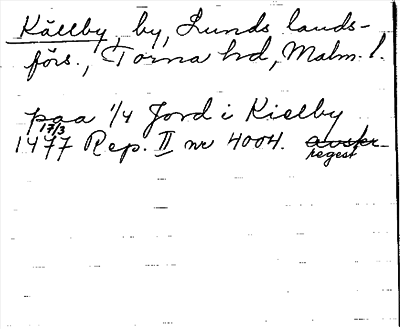 Källby, by, Lunds lands-
förs., Torna hd, Malm. l.
paa 1/4 Jord i Kielby
17/3
1477 Rep. II nr 4004. avskr.
regest